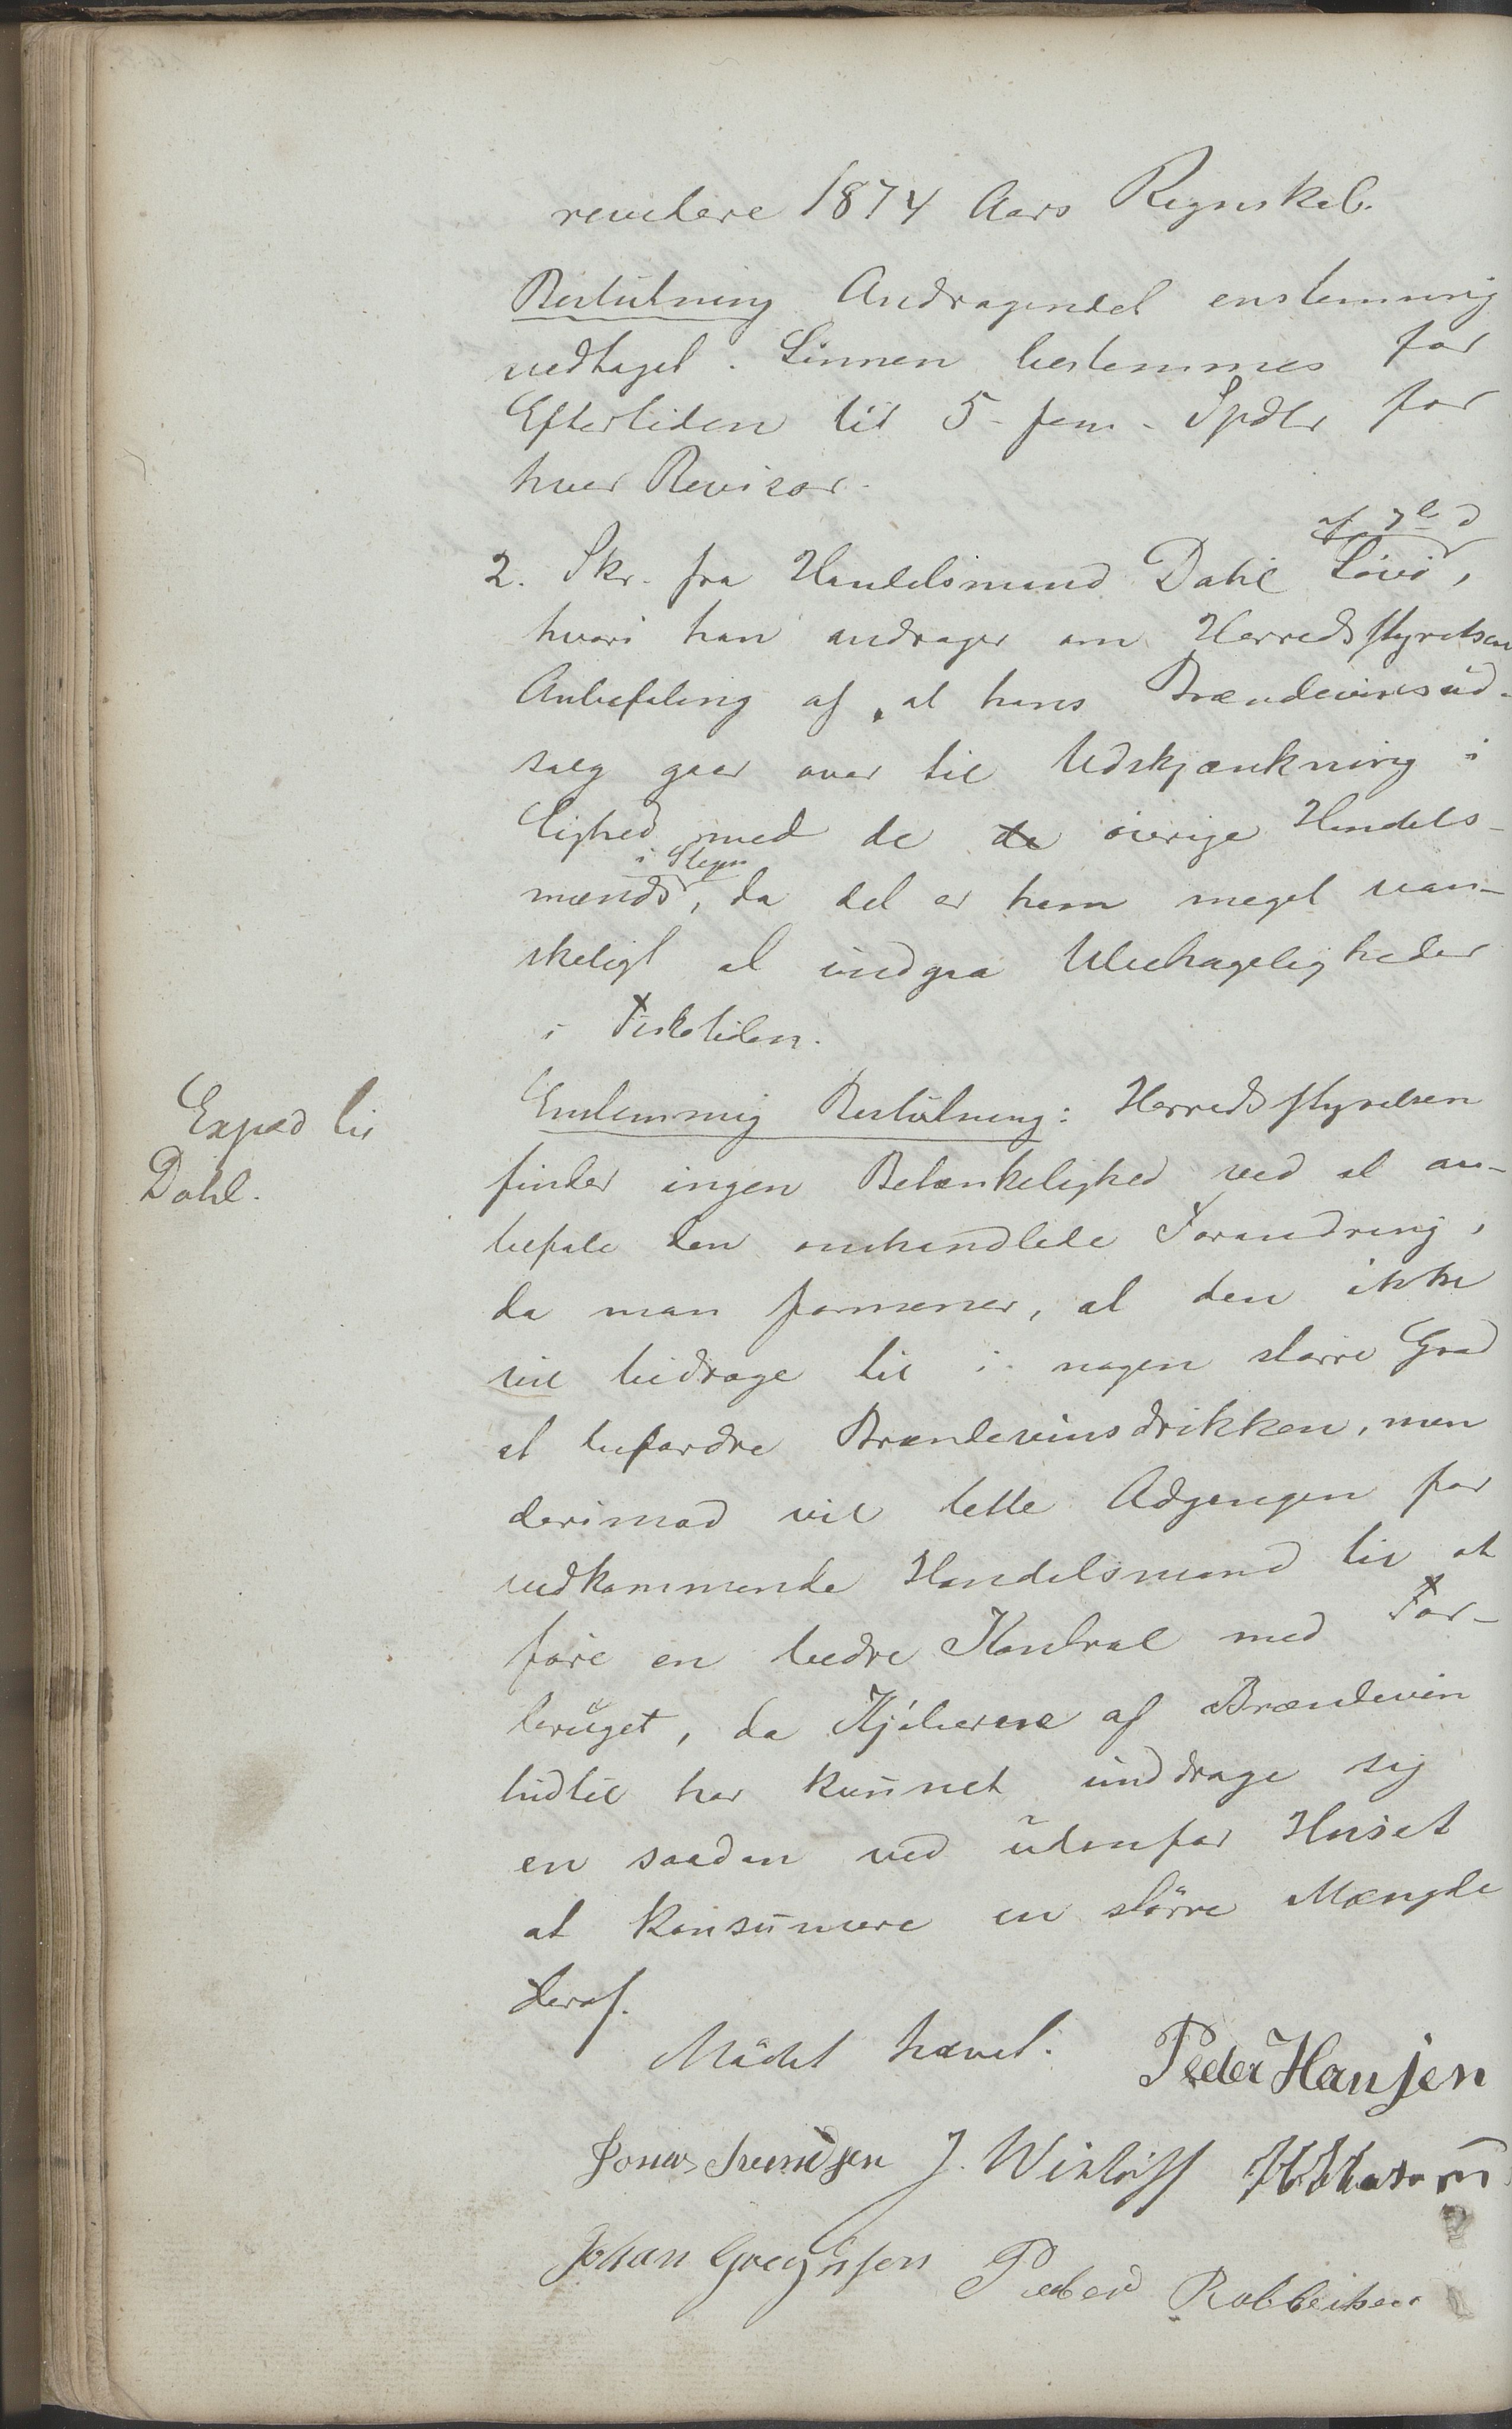 revidere 1874 Aars Regnskab.
Beslutning Andragendet enstemmig
vedtaget. Lönnen bestemmes for
Eftertiden til 5 - fem - Spdlr for
hver Revisor.
af 7de d
2. Skr. fra Handelsmand Dahl Lövö,
hvori han andrager om Herredsstyrelsen
Anbefaling af, at hans Brændevinsud-
salg gaar over til Udskjænkning i
Lighed med de de övrige Handels-
i Stegen
mænds, da det er ham meget van-
skeligt at undgaa Ubehageligheder
i Fisketiden.
Exped til
Dahl.
Enstemmig Beslutning: Herredsstyrelsen
finder ingen Betænkelighed ved at an-
befale den omhandlede Forandring,
da man formener, at den ikke
vil bidrage til i nogen större Grad
at befordre Brændevinsdrikken, men
derimod vil lette Adgangen for
vedkommende Handelsmand til at
före en bedre Kontrol med For-
bruget, da Kjöberne af Brændevin
hidtil har kunnet unddrage sig
en saadan ved udenfor Huset
at konsumere en större Mængde
deraf.
Mödet hævet. Peder Hansen
Jonas Svendsen J. Wislöff
Johan Gregusson Peder Robbertsen